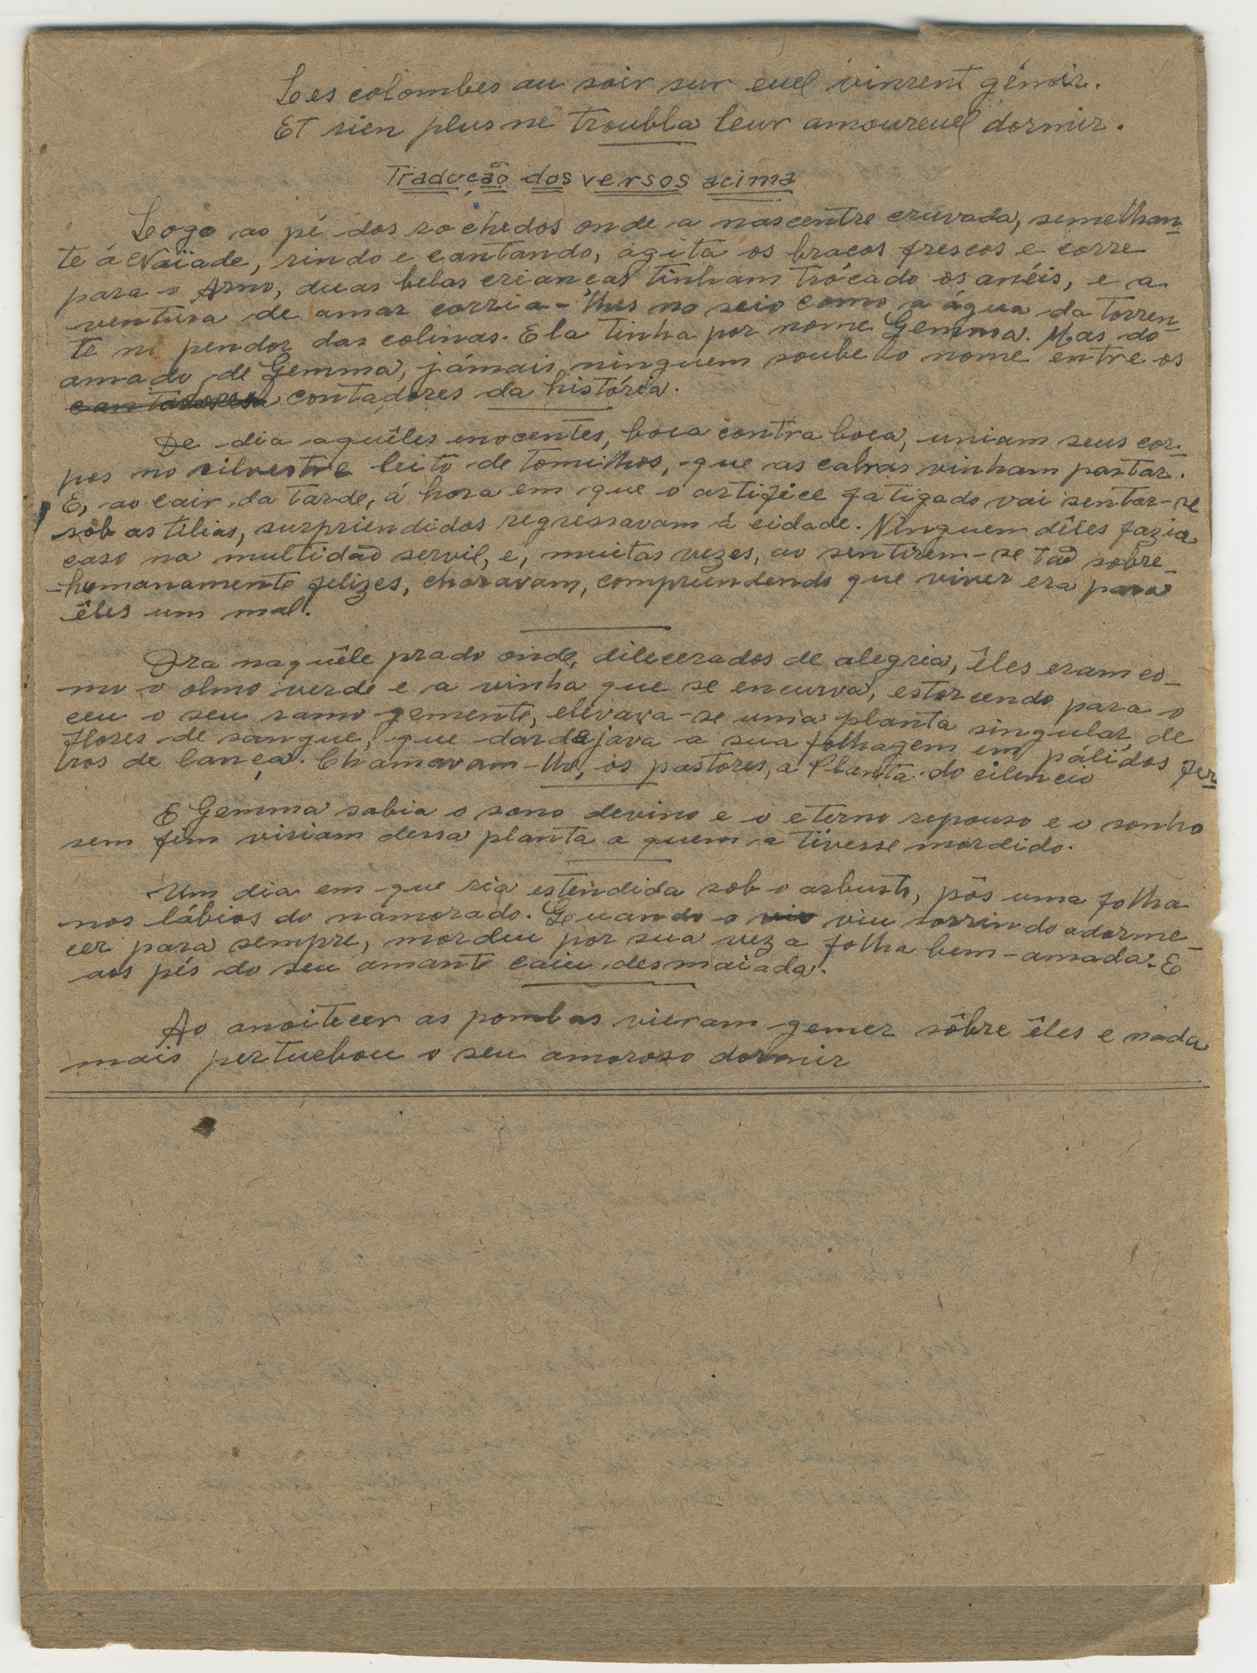 Les colombes au soir sur euel vinrent gémir.
Et rien plus ne troubla leur amoureuel dormir.
Tradução dos versos acima
Logo ao pé dos rochedos onde a nascentre cruvada, semelhan-
te á Naïade, rindo e cantando, agita os braços frescos e corre
para o Arno, duas belas crianças tinham trócado os anéis, e a
ventura de amar corria-lhes no seio como a água da torren-
te no pendor das colinas. Ela tinha por nome Gemma. Mas do
amado de Gemma, jámais ninguem soube o nome entre os
contadores da história.
De dia aquêles inocentes, boca contra boca, uniam seus cor-
pos no silvestre leito de tomilhos, que as cabras vinham pastar.
E, ao cair da tarde, á hora em que o artifice fatigado vai sentar-se
sôb as tílias, surpriendidos regressavam á cidade. Ninguem dêles fazia
caso na multidaõ servil, e, muitas vezes, ao sentirem-se taõ sobre-
-humanamente felizes, choravam, compriendendo que viver era para
êles um mal.
Ora naquêle prado onde, dilecerados de alegria, êles eram co-
mo o olmo verde e a vinha que se encurva, estorcendo para o
ceu o seu ramo gemente, elevava-se uma planta singular, de
flores de sangue, que dardejava a sua folhagem em pálidos fer-
ros de lança. Chamavam-lhe, os pastores, a Planta do cilencio
E Gemma sabia o sono devino e o eterno repouso e o sonho
sem fim viriam dessa planta a quem a tivesse mordido.
Um dia em que ria estendida sob o arbusto, pôs uma folha
nos lábios do namorado. Quando o viu sorrindo adorme-
cer para sempre, mordeu por sua vez a folha bem-amada. E
aos pés do seu amante caiu desmaiada.
Ao anoitecer as pombas vieram gemer sôbre êles e nada
mais pertuebou o seu amoroso dormir